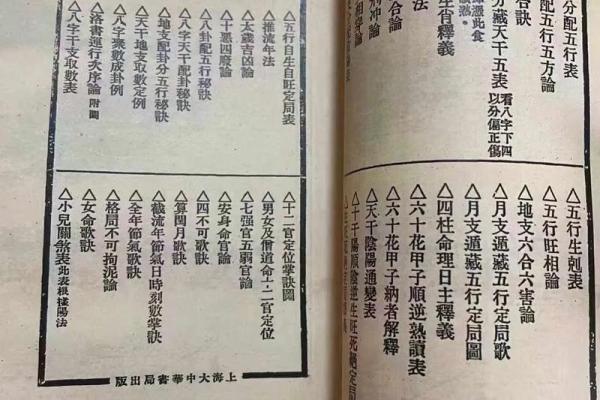 分配五行表
配五行五方論
合訣
分藏天干五表 看八字下四
以分偏正傷
法
憑此食
生肖釋義
合論
沖論
△五行生剋表
△五行旺相論
△地支六合六害論
△月支遁藏五行定局歌
△月支遁藏五行定局圖
△四柱命理日主釋義
△六十花甲子順逆熟讀表
△六十花甲子納者解釋
△天干陰陽通變表
△十干陽順陰逆生旺死絕定局
△五行自生自旺定局表
△推流年法
△太歲吉凶論
△十惡四廢論
△八卦配五行秘訣
△八字天干配卦秘訣
△地支配卦分五行秘訣
△天干地支取數定例
△八字衆數成卦例
△洛書運行次序論 附圖
△八字干支取數表
△十二官定位掌訣圖
△男女及僧道命十二官定位
△安身命官論
△七强官五弱官論
△四不可歌訣
△算閏月歌訣
△截流年節氣日時刻數掌訣
△全年節氣歌訣
△格局不可拘泥論
△女命歌訣
△小兒關煞表 此表根據陽法
上海大中華書局出版